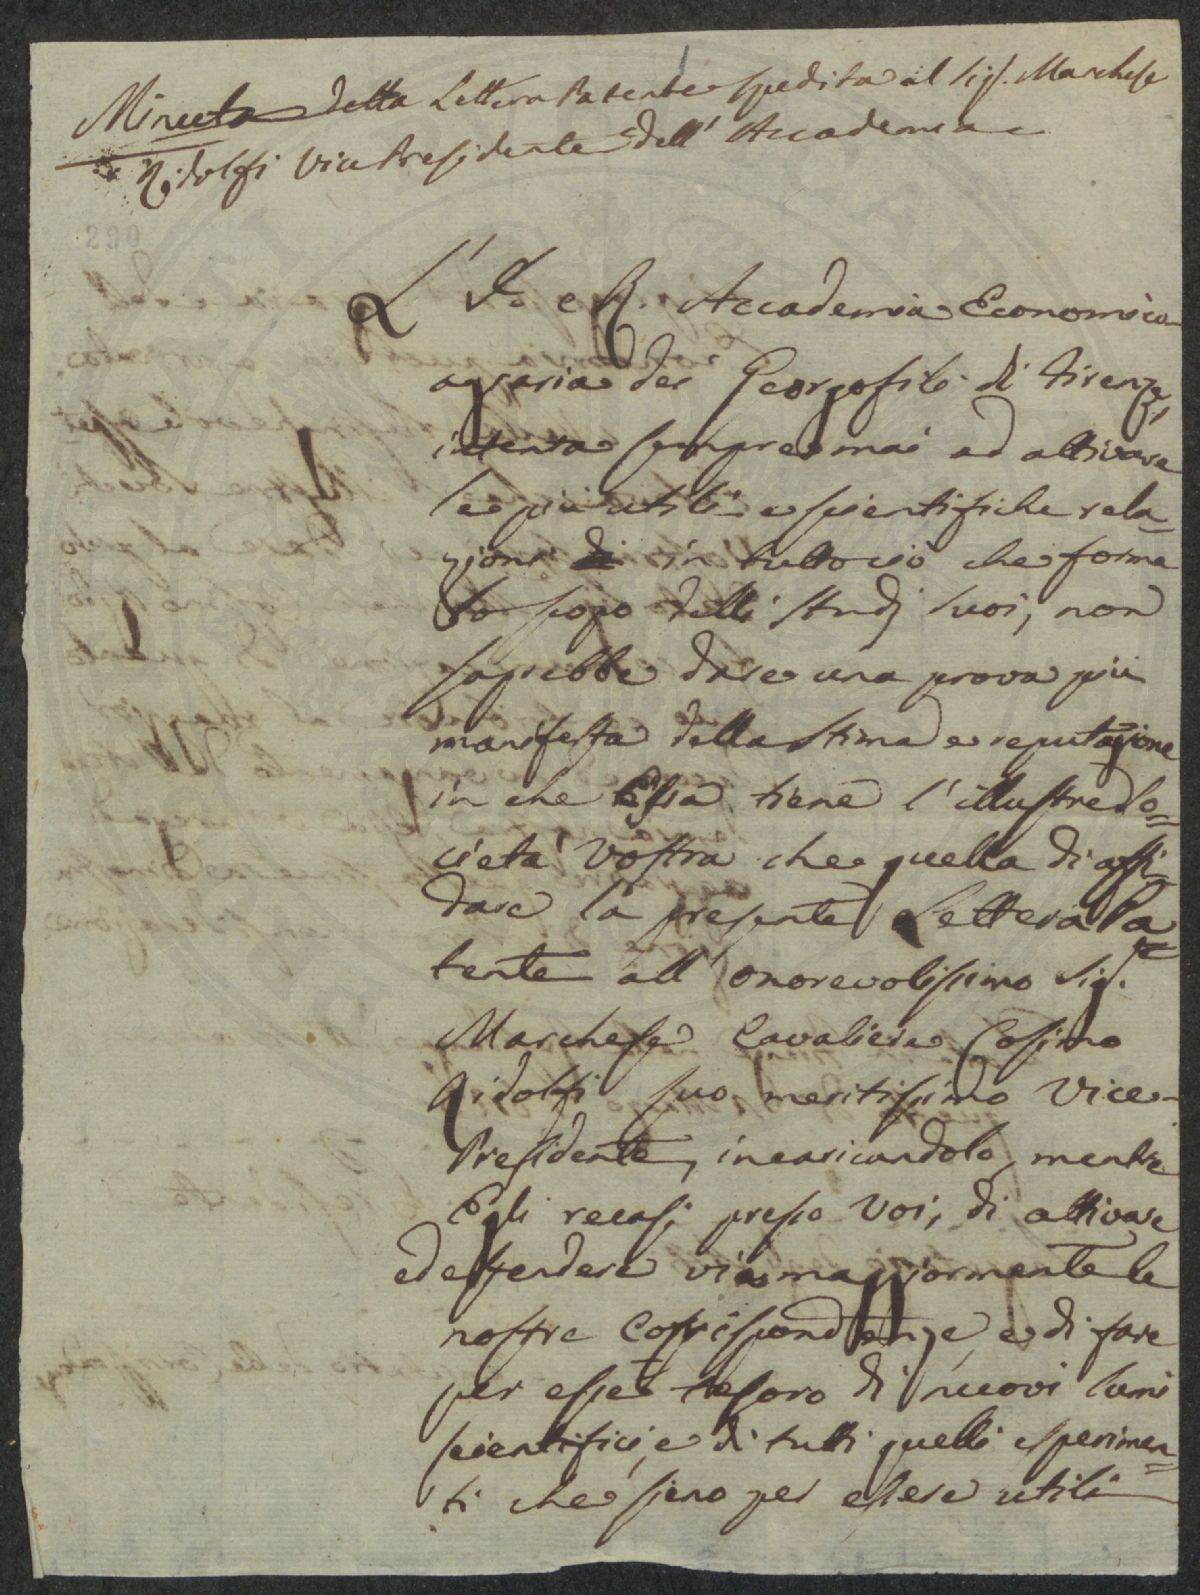 Minuta della Lettera Patente spedita al Sig. Marchese
Ridolfi Vice Presidente dell'Accademia
290
L'I. e R. Accademia Economico
agraria dei Georgofili di Firenze,
intenta sempre mai ad attivare
le più utili e scientifiche rela=
zioni di in tutto ciò che forma
lo scopo delli Studj suoi, non
saprebbe dare una prova più
manifesta della stima e reputazione
in che Essa tiene l'illustre So=
cietà Vostra che quella di affi=
dare la presente Lettera Pa=
tente all'onorevolissimo Sig.
Marchese Cavaliere Cosimo
Ridolfi suo meritissimo Vice-
Presidente, incaricandolo, mentre
Egli recasi presso Voi, di attivare
ed estendere viemaggiormente le
nostre Corrispondenze, e di fare
per esse tesoro di nuovi lumi
scientifici, e di tutti quelli esperimen=
ti che sieno per essere utili